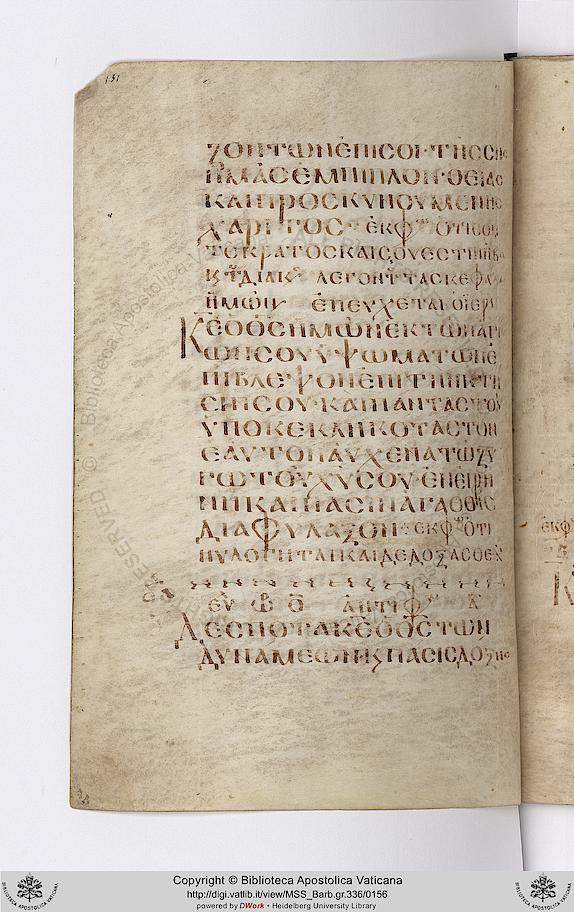 131
ΖΟΝΤΩΝ ΕΠΙ ΣΟΙ· ΤΗΣ
ΗΜΑΣ ΕΜΠΙΠΛΩΝ ΘΕΙΑΣ
ΚΑΙ ΠΡΟΣΚΥΝΟΥΜΕΝΗΣ
ΧΑΡΙΤΟΣ· ΕΚΦ ΟΤΙ ΣΟΝ
ΤΟ ΚΡΑΤΟΣ ΚΑΙ ΣΟΥ ΕΣΤΙΝ
ΔΙΑΚ ΛΕΓΟΝΤ ΤΑΣ ΚΕΦΑΛΑΣ
ΗΜΩΝ ΕΠΕΥΧΕΤΑΙ Ο ΙΕΡ
ΚΕ Ο ΘΣ ΗΜΩΝ ΕΚ ΤΩΝ ΑΓΙ
ΩΝ ΣΟΥ ΥΨΩΜΑΤΩΝ Ε
ΠΙΒΛΕΨΟΝ ΕΠΙ ΤΗΝ
ΣΟΥ· ΚΑΙ ΠΑΝΤΑΣ ΤΟΥΣ
ΥΠΟΚΕΚΛΗΚΟΤΑΣ ΤΟΝ
ΕΑΥΤΟΝ ΑΥΧΕΝΑ ΤΩ ΖΥ
ΓΩ ΤΟΥ ΧΥ ΣΟΥ· ΕΝ ΕΙΡΗ
ΝΗ ΚΑΙ ΠΑΣΙΝ ΑΓΑΘΟΙΣ
ΔΙΑΦΥΛΑΞΟΝ· ΕΚΦ ΟΤΙ
ΗΥΛΟΓΗΤΑΙ ΚΑΙ ΔΕΔΟΞΑΣ
ΕΥ ΑΝΤΙΦ Α
ΔΕΣΠΟΤΑ ΚΕ Ο ΘΣ ΤΩΝ
ΔΥΝΑΜΕΩΝ Κ ΠΑΣΙΣ
ΕΚΦ
Copyright © Biblioteca Apostolica Vaticana
http://digi.vatlib.it/view/MSS_Barb.gr.336/0156
powered by DWork • Heidelberg University Library